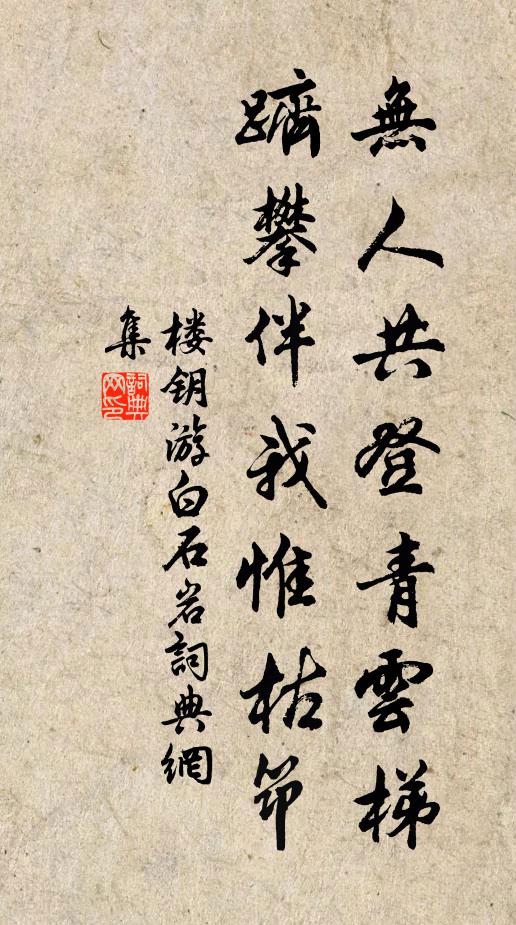 無人共登青雲梯
躋攀伴我惟枯笻
楼钥游白石岩詞典網
集
詞典
网印